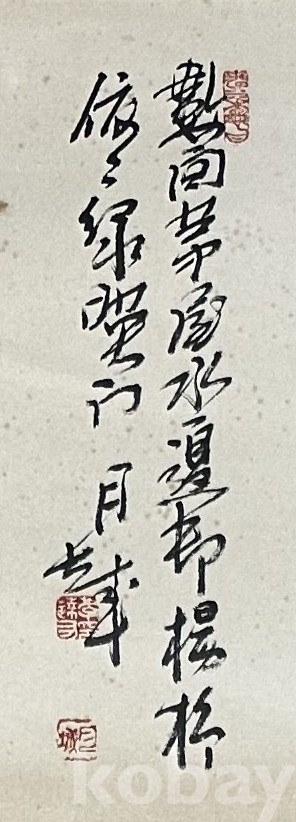 數間茅屋水邊邨楊柳
依〻綠暎門
月城
kobay